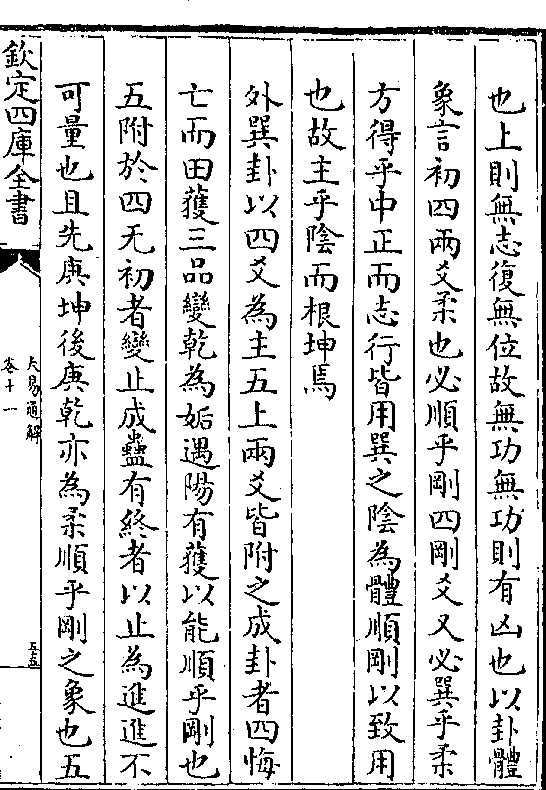 也上則無志復無位故無功無功則有凶也以卦體
象言初四兩爻柔也必順乎剛四剛爻又必巽乎柔
方得乎中正而志行皆用巽之陰為體順剛以致用
也故主乎陰而根坤焉
外巽卦以四爻為主五上兩爻皆附之成卦者四悔
亡而田獲三品變乾為姤遇陽有獲以能順乎剛也
五附於四无初者變止成蠱有終者以止為進進不
可量也且先庚坤後庚乾亦為柔順乎剛之象也五
欽定四庫全書
大易通解
卷十一
五十五